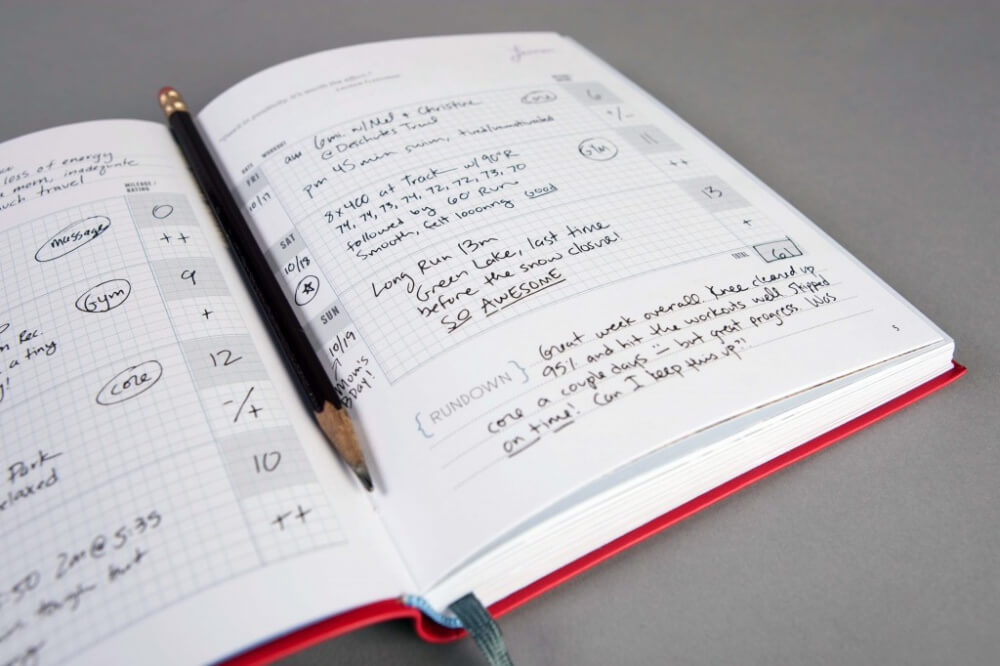 loss of energy
mom, inadequate
travel
MILEAGE /
RATING
0
massage
++
9
Gym
+
Rec.
a tiny
12
core
-/+
Park
10
2m @ 5:35
++
tough but
It's worth the effort."
DATE
WORKOUT
FRI
10/17
am 6mi. w/Mel + Christine
@ Deschutes Trail
core
6
pm 45 min swim, tired/unmotivated
+/-
SAT
10/18
8x400 at Track w/ 90"R
74, 74, 73, 74, 72, 72, 73, 70
followed by 60' Run
Smooth, felt looong good
Gym
11
++
SUN
10/19
Mom's
Bday!
Long Run 13m
Green Lake, last time
before the snow closure!
SO AWESOME
13
+
TOTAL
61
{ RUNDOWN }
Great week overall. Knee cleared up
95% and hit the workouts well. Skipped
core a couple days but great progress. Was
on time! Can I keep this up?!
5